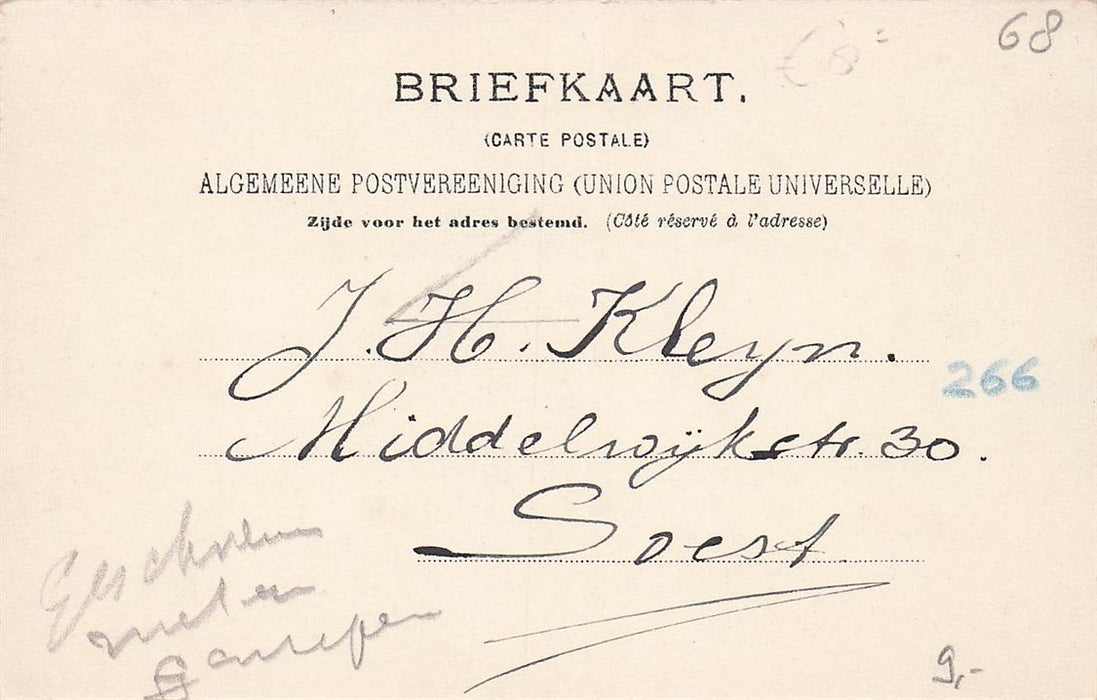 68
€ 8=
BRIEFKAART.
(CARTE POSTALE)
ALGEMEENE POSTVEREENIGING (UNION POSTALE UNIVERSELLE)
Zijde voor het adres bestemd. (Côté réservé à l'adresse)
J. H. Kleyn.
266
Middelwijkstr. 30.
Soest.
Geschreven
met een
Ganzepen
9,-